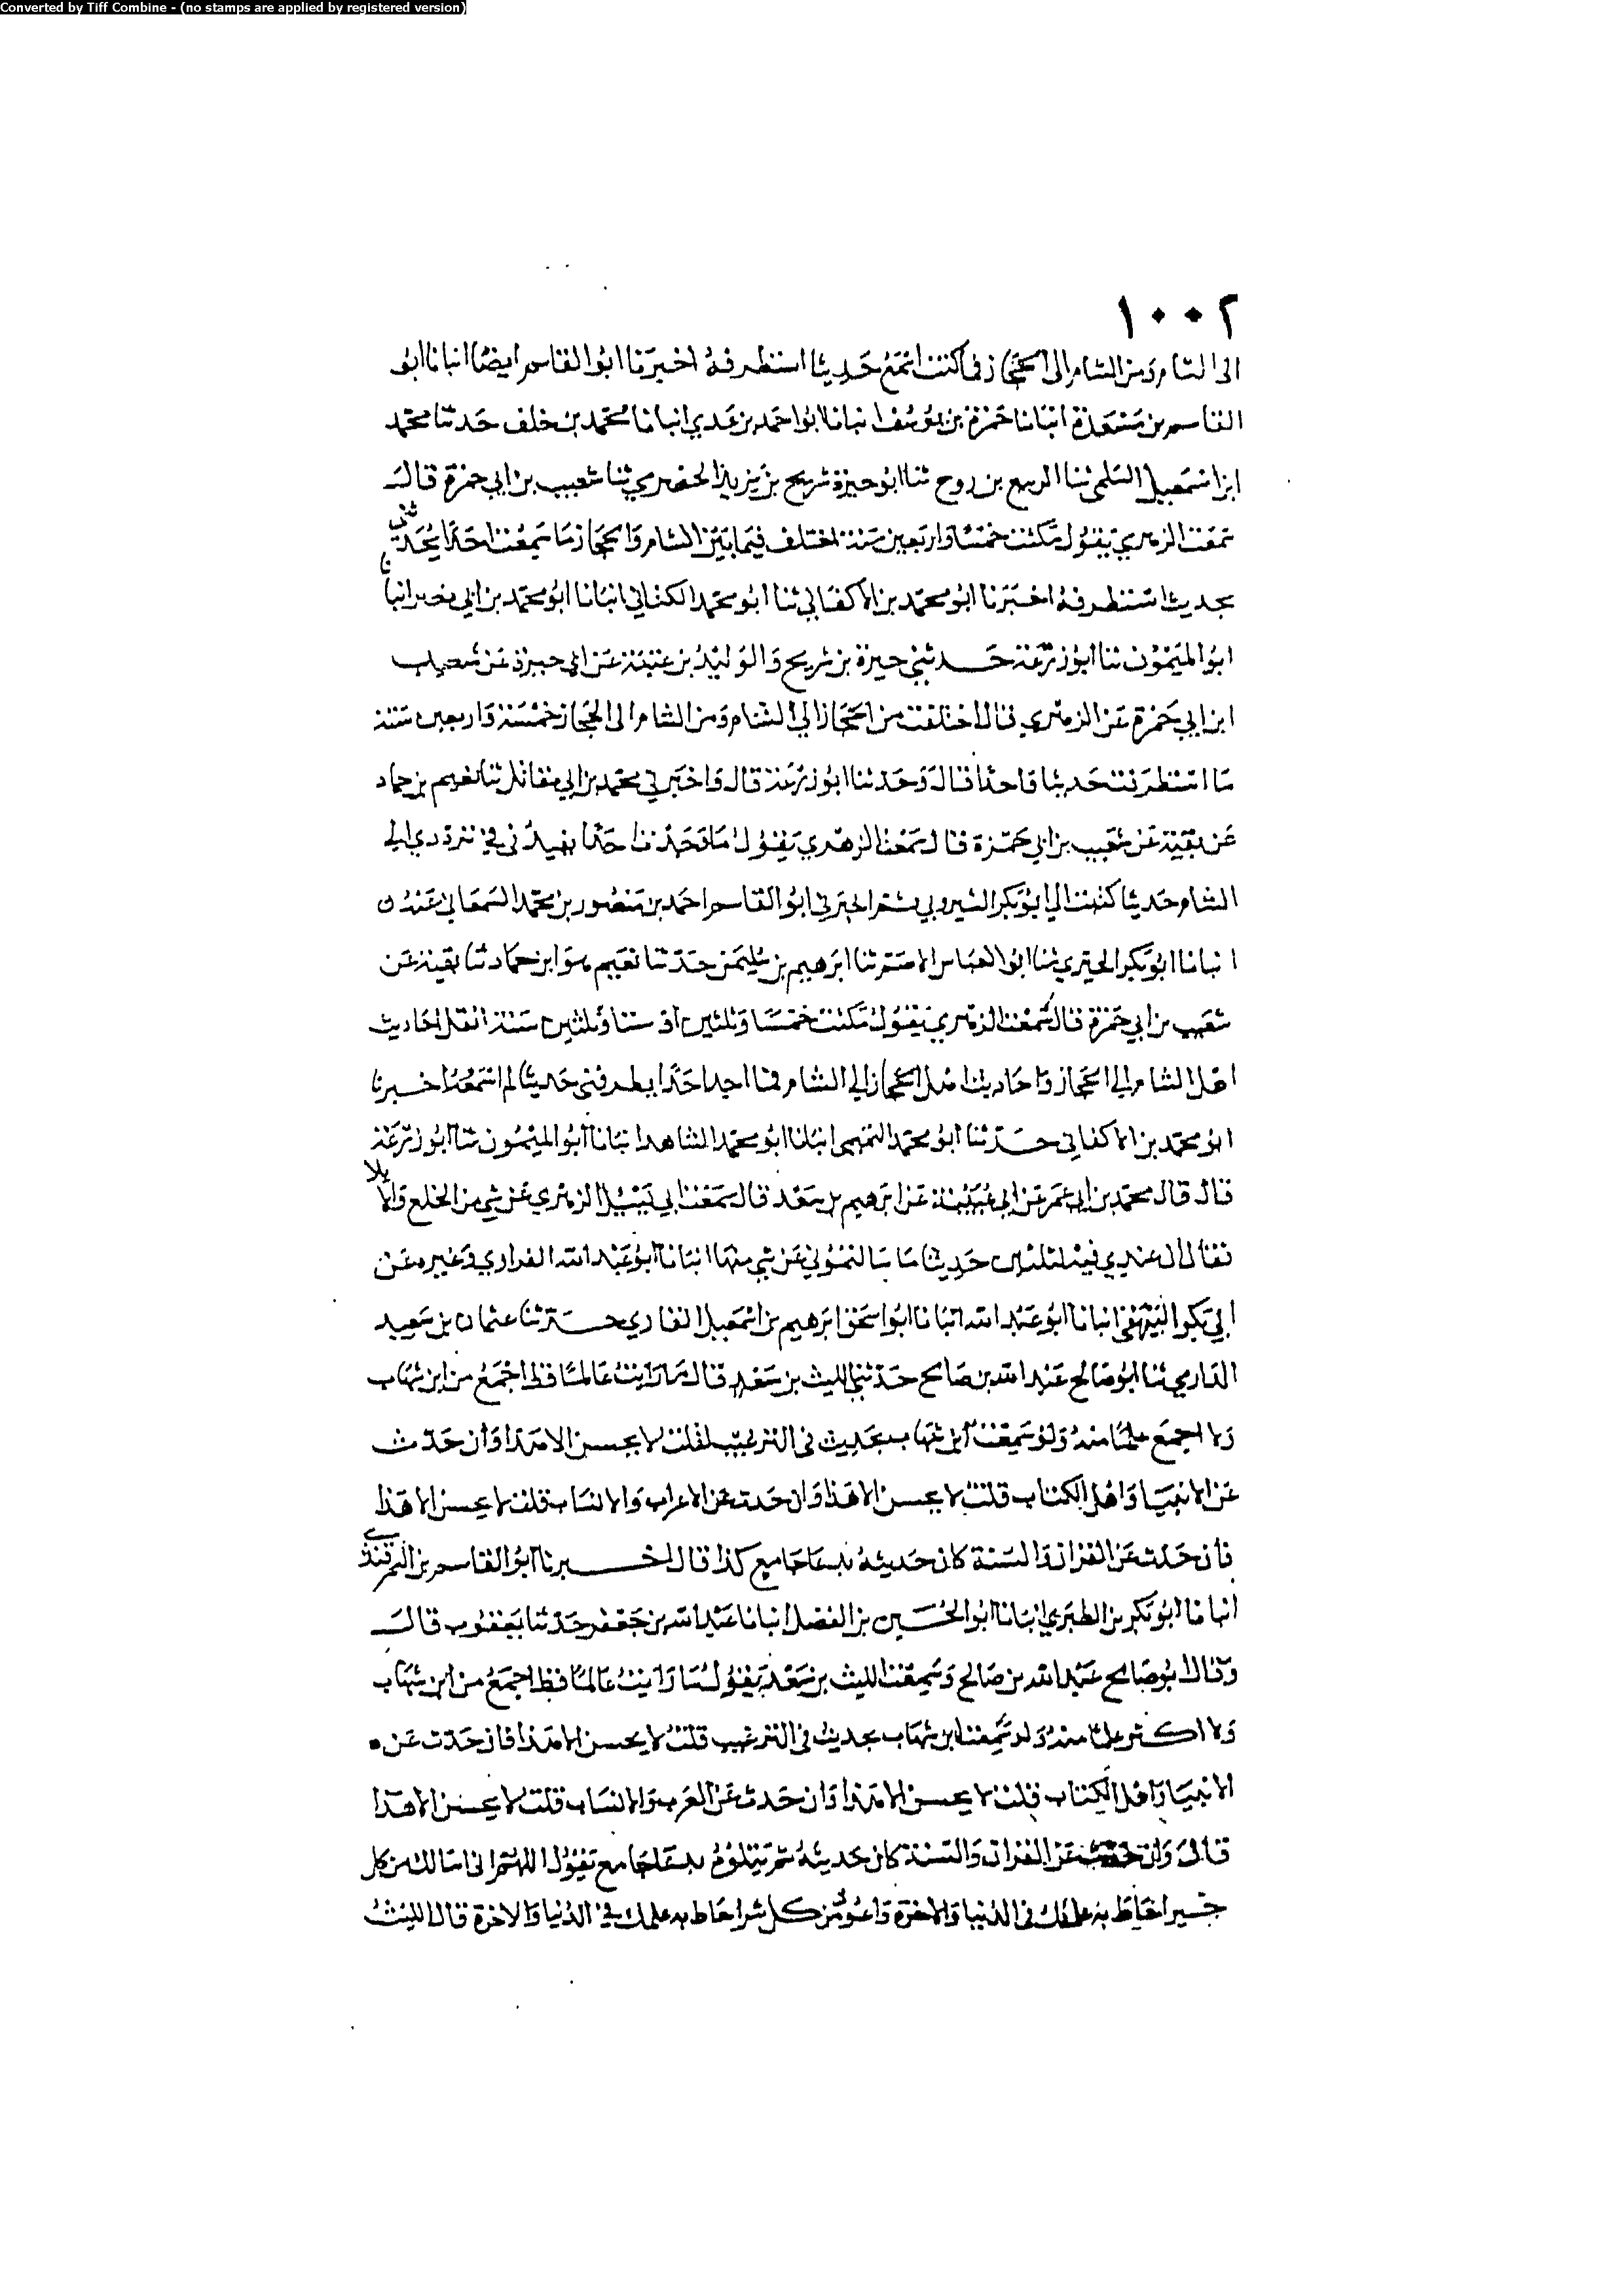 Converted by Tiff Combine - (no stamps are applied by registered version)
١٠٠٢
الى الشام ومن الشام الى الحجاز فما كنت اسمع حديثا استطرفه اخبرنا ابوا القاسم ايضا انبانا ابو
القاسم بن مسعدة انبانا حمزة بن يوسف انبانا ابوا احمد بن عدي انبانا محمد بن خلف حدثنا محمد
ابن اسمعيل السلمي ثنا الربيع بن روح ثنا ابو حيوة شريح بن يزيد الحضرمي ثنا شعيب بن ابي حمزة قال
سمعت الزهري يقول مكثت خمسا واربعين سنة اختلف فيما بين الشام والحجاز ما سمعت احدا يحدثني
بحديث استطرفه اخبرنا ابو محمد بن الاكفاني ثنا ابو محمد الكتاني انبانا ابو محمد بن ابي نصر انبانا
ابو الميمون ثنا ابو زرعة حدثني حيوة بن شريح والوليد بن عتبة عن ابي حيوة عن شعيب
ابن ابي حمزة عن الزهري قال اختلفت من الحجاز الى الشام ومن الشام الى الحجاز خمسة واربعين سنة
ما استطرفت حديثا واحدا قال وحدثنا ابو زرعة قال واخبرني محمد بن ابي مقاتل ثنا نعيم بن حماد
عن بقية عن شعيب بن ابي حمزة قال سمعت الزهري يقول ما وجدت احدا يفيدني في ترددي الى
الشام حديثا كتبت الي ابو بكر الشيروبي ثم اخبرني ابو القاسم احمد بن منصور بن محمد السمعاني عنه
انبانا ابو بكر الحيري ثنا ابو العباس الاصم ثنا ابرهيم بن سليمن حدثنا نعيم هو ابن حماد ثنا بقية عن
شعيب بن ابي حمزة قال سمعت الزهري يقول مكثت خمسا وثلثين او ستا وثلثين سنة انقل احاديث
اهل الشام الى الحجاز واحاديث اهل الحجاز الى الشام فما اجد احدا يطرفني حديثا لم اسمعه اخبرنا
ابو محمد بن الاكفاني حدثنا ابو محمد التميمي انبانا ابو محمد الشاهد انبانا ابو الميمون ثنا ابو زرعة
قال قال محمد بن ابي عمر عن ابن عيينة عن ابرهيم بن سعد قال سمعت ابي يسل الزهري عن شي من الخلع والايلا
فقال ان عندي فيه لثلثين حديثا ما سالتموني عن شي منها انبانا ابو عبد الله الفراوي وغيره عن
ابي بكر البيهقي انبانا ابو عبد الله انبانا ابو اسحق ابرهيم بن اسمعيل القاري حدثنا عثمان بن سعيد
الدارمي ثنا ابو صالح عبد الله بن صالح حدثني الليث بن سعد قال ما رايت عالما قط اجمع من ابن شهاب
ولا اجمع علما منه ولو سمعت ابن شهاب يحدث في الترغيب لقلت لا يحسن الا هذا وان حدث
عن الانبيا واهل الكتاب قلت لا يحسن الا هذا وان حدث عن الاعراب والانساب قلت لا يحسن الا هذا
فان حدث عن القران والسنة كان حديثه جامع كذا قال اخبرنا ابو القاسم بن السمرقندي
انبانا ابو بكر بن الطبري انبانا ابو الحسين بن الفضل انبانا عبد الله بن جعفر حدثنا يعقوب قال
وقال ابو صالح عبد الله بن صالح وسمعت الليث بن سعد يقول ما رايت عالما قط اجمع من ابن شهاب
ولا اكثر علما منه ولو سمعت ابن شهاب يحدث في الترغيب قلت لا يحسن الا هذا فان حدث عن
الانبيا واهل الكتاب قلت لا يحسن الا هذا وان حدث عن العرب والانساب قلت لا يحسن الا هذا
قال وان حدث عن القران والسنة كان حديثه ثم يتلوه بدعا جامع يقول اللهم اني اسالك من كل
خير احاط به علمك في الدنيا والاخرة واعوذ بك من كل شر احاط به علمك في الدنيا والاخرة قال الليث